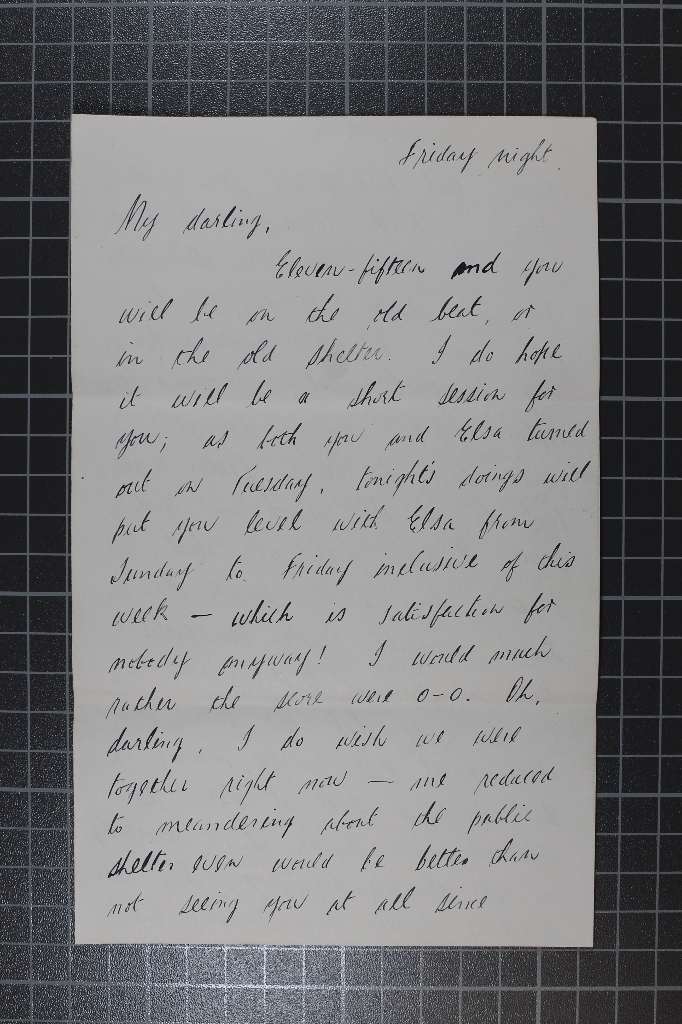 Friday night.
My darling,
Eleven-fifteen and you
will be on the old beat, or
in the old shelter. I do hope
it will be a short session for
you; as both you and Elsa turned
out on Tuesday, tonight's doings will
put you level with Elsa from
Sunday to Friday inclusive of this
week — which is satisfaction for
nobody anyway! I would much
rather the score were 0-0. Oh,
darling, I do wish we were
together right now — me reduced
to meandering about the public
shelter even would be better than
not seeing you at all since